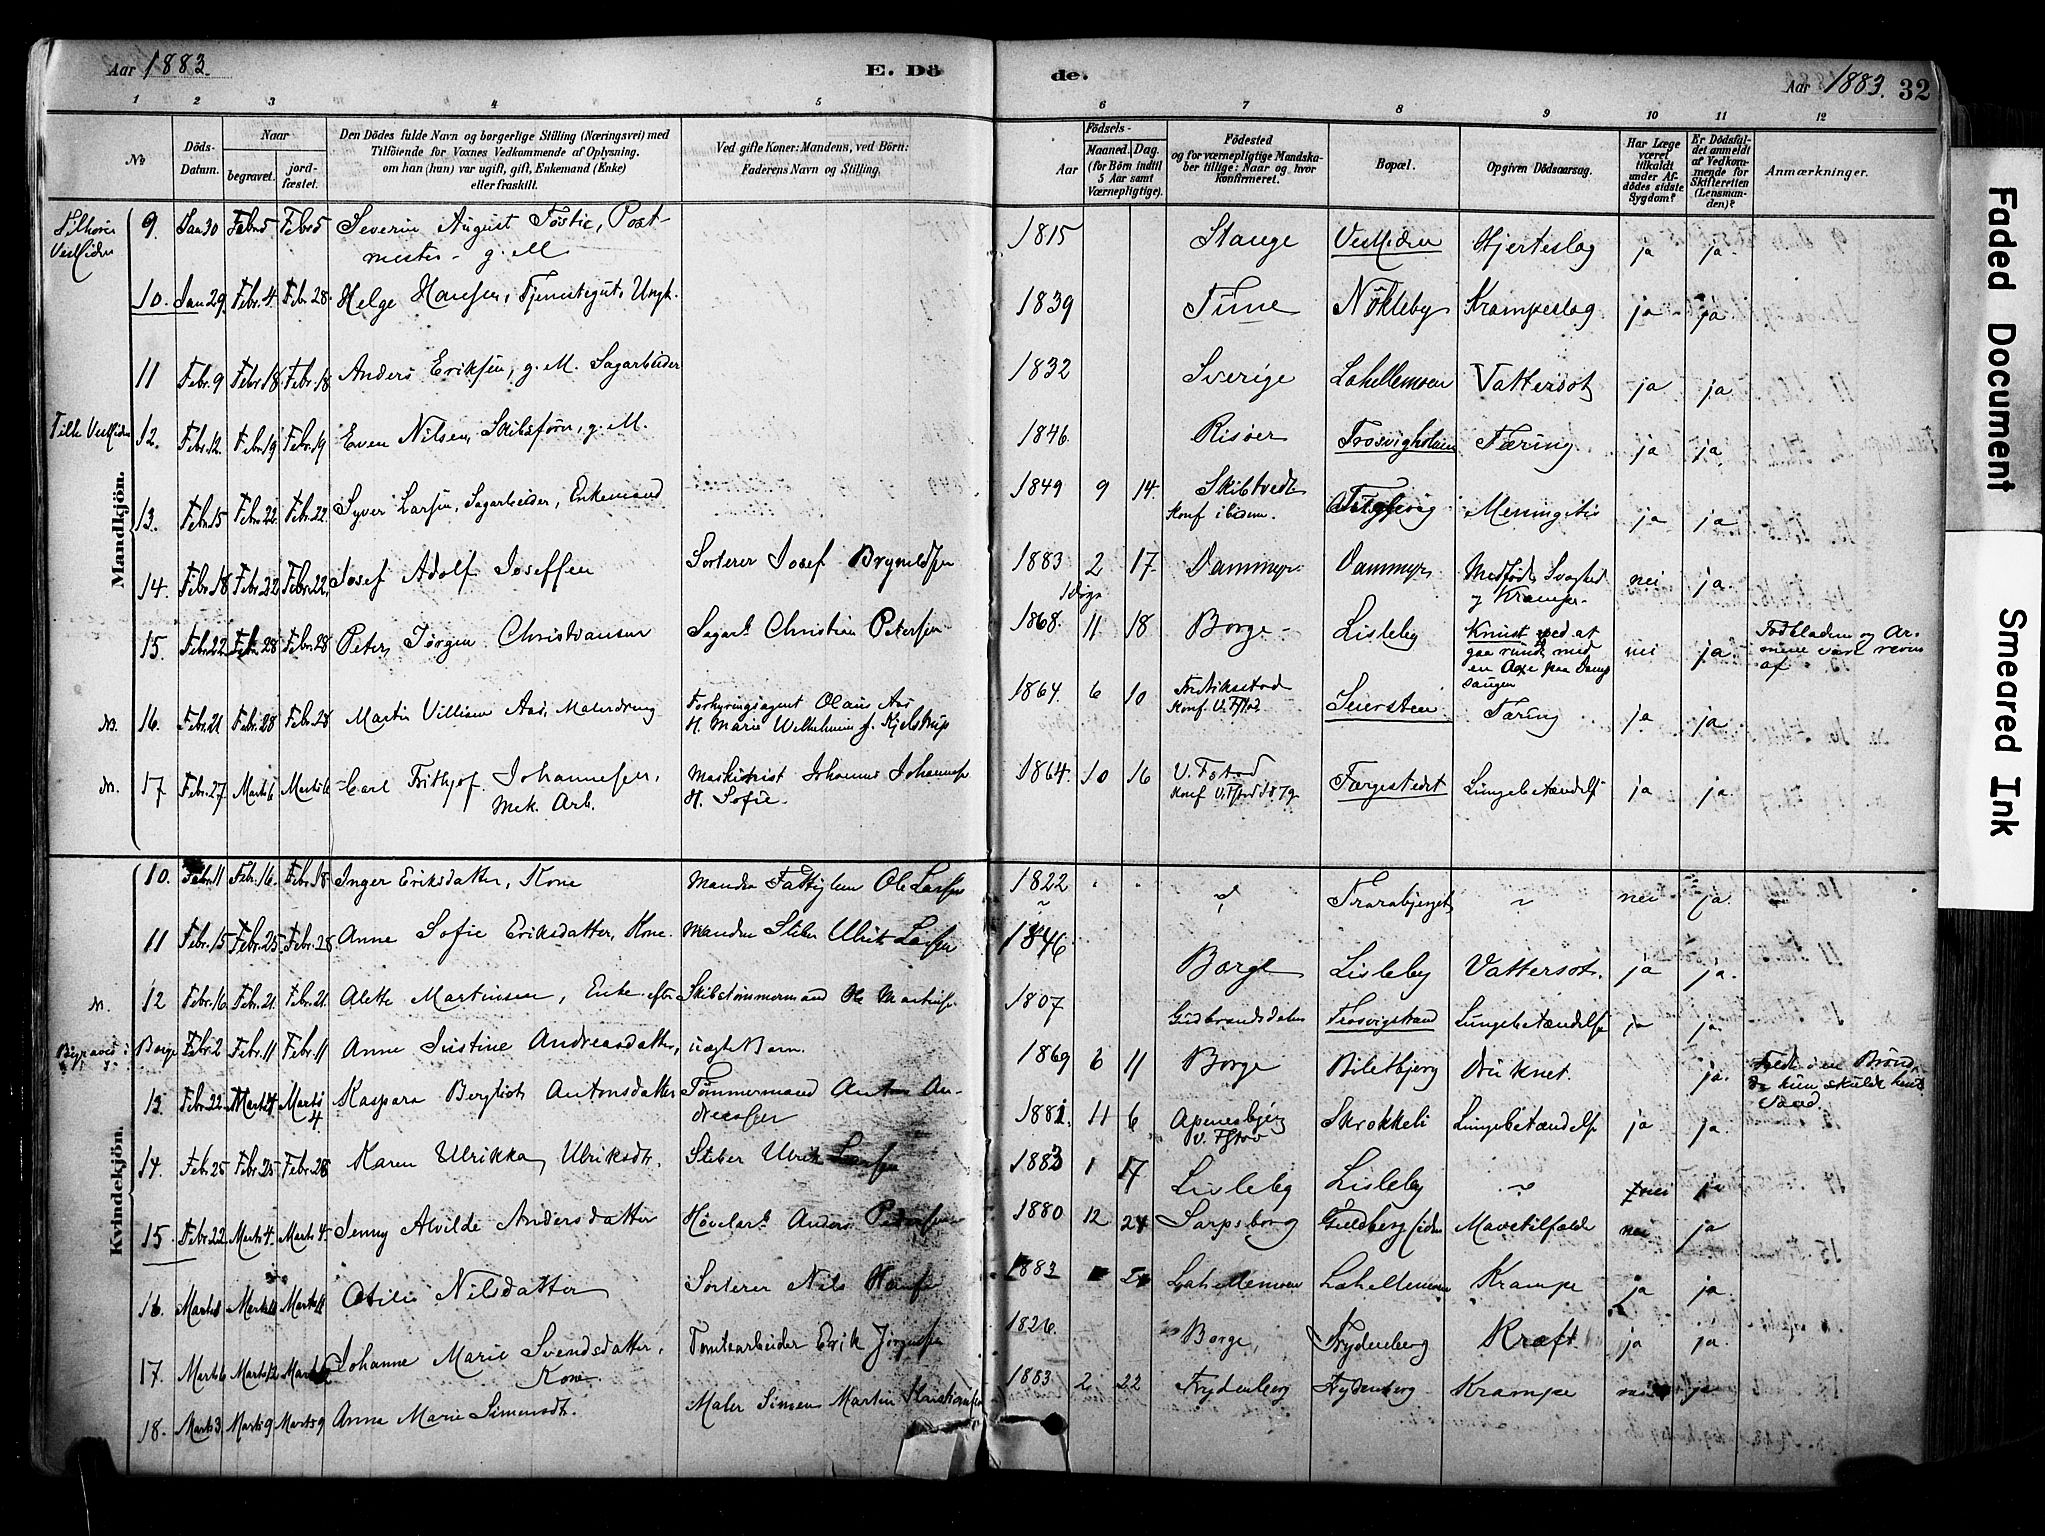 Aar 1883.
E. Dö
de.
Aar 1883. 32
1 2 3 4 5 6 7 8 9 10 11 12
No
Döds-Datum.
Naar
begravet.
jord-fæstet.
Den Dödes fulde Navn og borgerlige Stilling (Næringsvei) med
Tilföiende for Voxnes Vedkommende af Oplysning,
om han (hun) var ugift, gift, Enkemand (Enke)
eller fraskilt.
Ved gifte Koner: Mandens, ved Börn:
Faderens Navn og Stilling,
Födsels-
Aar
Maaned. Dag.
(for Börn indtil
5 Aar samt
Værnepligtige).
Födested
og for værnepligtige Mandska-
ber tillige: Naar og hvor
konfirmeret.
Bopæl.
Opgiven Dödsaarsag.
Har Læge
været
tilkaldt
under Af-
dödes sidste
Sygdom?
Er Dödsfal-
det anmeldt
af Vedkom-
mende for
Skifteretten
(Lensman-
den)?
Anmærkninger.
Mandkjön.
9. Jan 30 Febr 5 Febr 5 Severin August Post-
mester g. M 1815 Stange Hjerteslag ja ja.
10. Jan 29. Febr. 4. Febr. 28. Helge Hansen, Tjenestegut, Ungk. 1839 Tune Nökleby Krampeslag ja ja
11 Febr. 9 Febr 18 Febr. 18 Anders Eriksen, g. M. Sagarbeider 1832 Sverige Lahellemoen Vattersot ja ja
12. Febr. 12. Febr. 19 Febr. 19 Even Nilsen, g. M. 1846 Risöer Trosvigholmen Tæring ja ja
13. Febr. 15 Febr. 22. Febr. 22 Syver Larsen, Sagarbeider, Enkemand 1849 9 14. Skibtvedt
Konf ibidem. Meningitis ja ja
14. Febr. 18 Febr. 22 Febr. 22, Josef Adolf Joseffsen Sorterer Josef Brynildsen 1883 2 17. Dammyr Dammyr Medfödt Svaghed
og Kramper nei ja.
15. Febr. 22 Febr. 28 Febr. 28 Peter Jörgen Christiansen Sagarb. Christian Petersen 1868. 11 18 Borge Lisleby Knust ved at
gaa rundt med
en Axe paa Damp
saugen nei ja Fodbladene og Ar-
mene vare revne
af
16. Febr. 21 Febr. 28 Febr. 28 Martin Villiam Aas, Malerdreng Forhyringsagent Olaus Aas
H. Marie Wilhelmine f. Kjelstrup 1864. 6 10 Fredrikstad
Seiersteen Tæring ja ja
17 Febr. 27 Marts 6 Marts 6 Carl Frithjof Johannesen,
Mek. Arb. Maskinist Johannes Johannesen
H. Sofie. 1864. 10 16 Færgestedet Lungebetændelse ja ja.
Kvindekjön.
10. Febr. 11 Febr. 16. Febr. 18 Inger Eriksdatter, Kone Manden Fattiglem Ole Larsen 1822 nei ja.
11 Febr. 15 Febr. 25 Febr. 28 Anne Sofie Eriksdatter, Kone. Manden Stiber Ulrik Larsen 1846. Borge Lisleby Vattersot. ja ja.
12 Febr. 16 Febr. 21. Febr. 21. Alette Martinsen, Enke efter Skibstömmermand Ole Martinsen 1807 Gudbrandsdalen Trosvigstrand Lungebetændelse ja ja
Begravet i Borge Febr. 2 Febr. 11 Febr. 11 Anne Justine Andreasdatter, uægte Barn. 1869 6 11 Borge Druknet. ja. Faldt i en Brönd,
da hun skulde hente
Vand.
13. Febr. 22 Marts 4 Marts
4 Kaspara Bergliot Antonsdatter Tömmermand Anton An-
dreassen 1881. 11 6 Skrokkeli Lungebetændelse ja ja
14. Febr. 25 Febr. 25 Febr. 28 Karen Ulrikka Ulriksdtr. Stiber Ulrik Larsen 1883 1 17 Lisleby Lisleby nei ja
15 Febr. 22 Marts 4. Marts 4. Jenny Alvilde Andersdatter Hövelarb. Anders Pedersen 1880 12 24 Sarpsborg Mavetilfælde nei ja
16. Otilie Nilsdatter Sorterer Nils Hansen 1883 Lahellemoen Lahellemoen Krampe ja ja.
17. Marts 6 Marts 12 Johanne Marie Svendsdatter,
Kone Tomtearbeider Erik Jörgensen 1826. Borge, Frydenberg Kræft ja ja.
18. Marts 3 Marts 9 Marts 9 Anna Marie Simensdtr. Maler Simen Martin 1883 2 22 Frydenberg Frydenberg Krampe ja
Faded Document
Smeared Ink